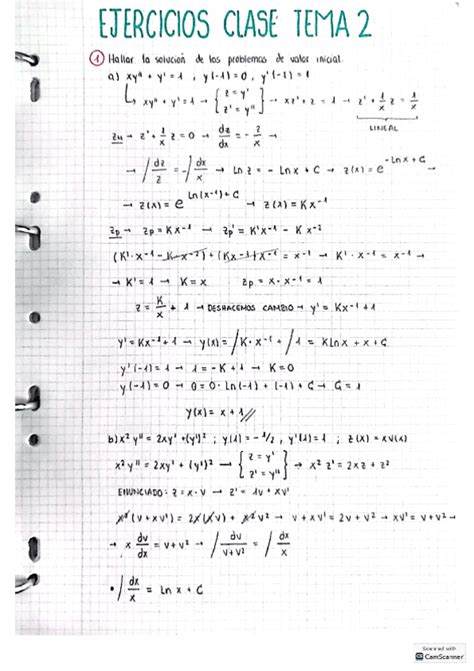 EJERCICIOS CLASE TEMA 2
① Hallar la solución de los problemas de valor inicial.
a) xy'' + y' = 1 , y(-1) = 0 , y'(-1) = 1
↳ xy'' + y' = 1 → { z = y' z' = y'' } → xz' + z = 1 → z' + 1/x z = 1/x
LINEAL
zH → z' + 1/x z = 0 → dz/dx = - z/x →
→ ∫ dz/z = - ∫ dx/x → Ln z = - Ln x + C → z(x) = e^(-Ln x + C) →
→ z(x) = e^(Ln(x⁻¹) + C) → z(x) = Kx⁻¹
zp → zp = Kx⁻¹ → zp' = K'x⁻¹ - Kx⁻²
(K'·x⁻¹ - K·x⁻²) + (Kx⁻¹)x⁻¹ = x⁻¹ → K'·x⁻¹ = x⁻¹ →
→ K' = 1 → K = x zp = x·x⁻¹ = 1
z = K/x + 1 → DESHACEMOS CAMBIO → y' = Kx⁻¹ + 1
y' = Kx⁻¹ + 1 → y(x) = ∫ K·x⁻¹ + ∫ 1 = K ln x + x + C
y'(-1) = 1 → 1 = -K + 1 → K = 0
y(-1) = 0 → 0 = 0·Ln(-1) + (-1) + C → C = 1
y(x) = x + 1 //
b) x² y'' = 2xy' + (y')² ; y(1) = -1/2 , y'(1) = 1 ; z(x) = xv(x)
x² y'' = 2xy' + (y')² → { z = y' z' = y'' } → x² z' = 2xz + z²
ENUNCIADO: z = x·v → z' = 1v + xv'
x²(v + xv') = 2x(xv) + x²v² → v + xv' = 2v + v² → xv' = v + v² →
→ x dv/dx = v + v² → ∫ dv/v+v² = ∫ dx/x
• ∫ dx/x = Ln x + C
Scanned with
CamScanner